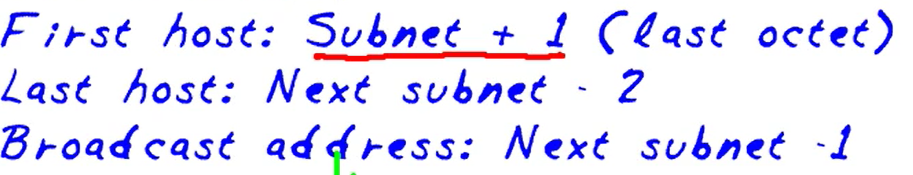 First host: Subnet + 1 (last octet)
Last host: Next subnet - 2
Broadcast address: Next subnet -1